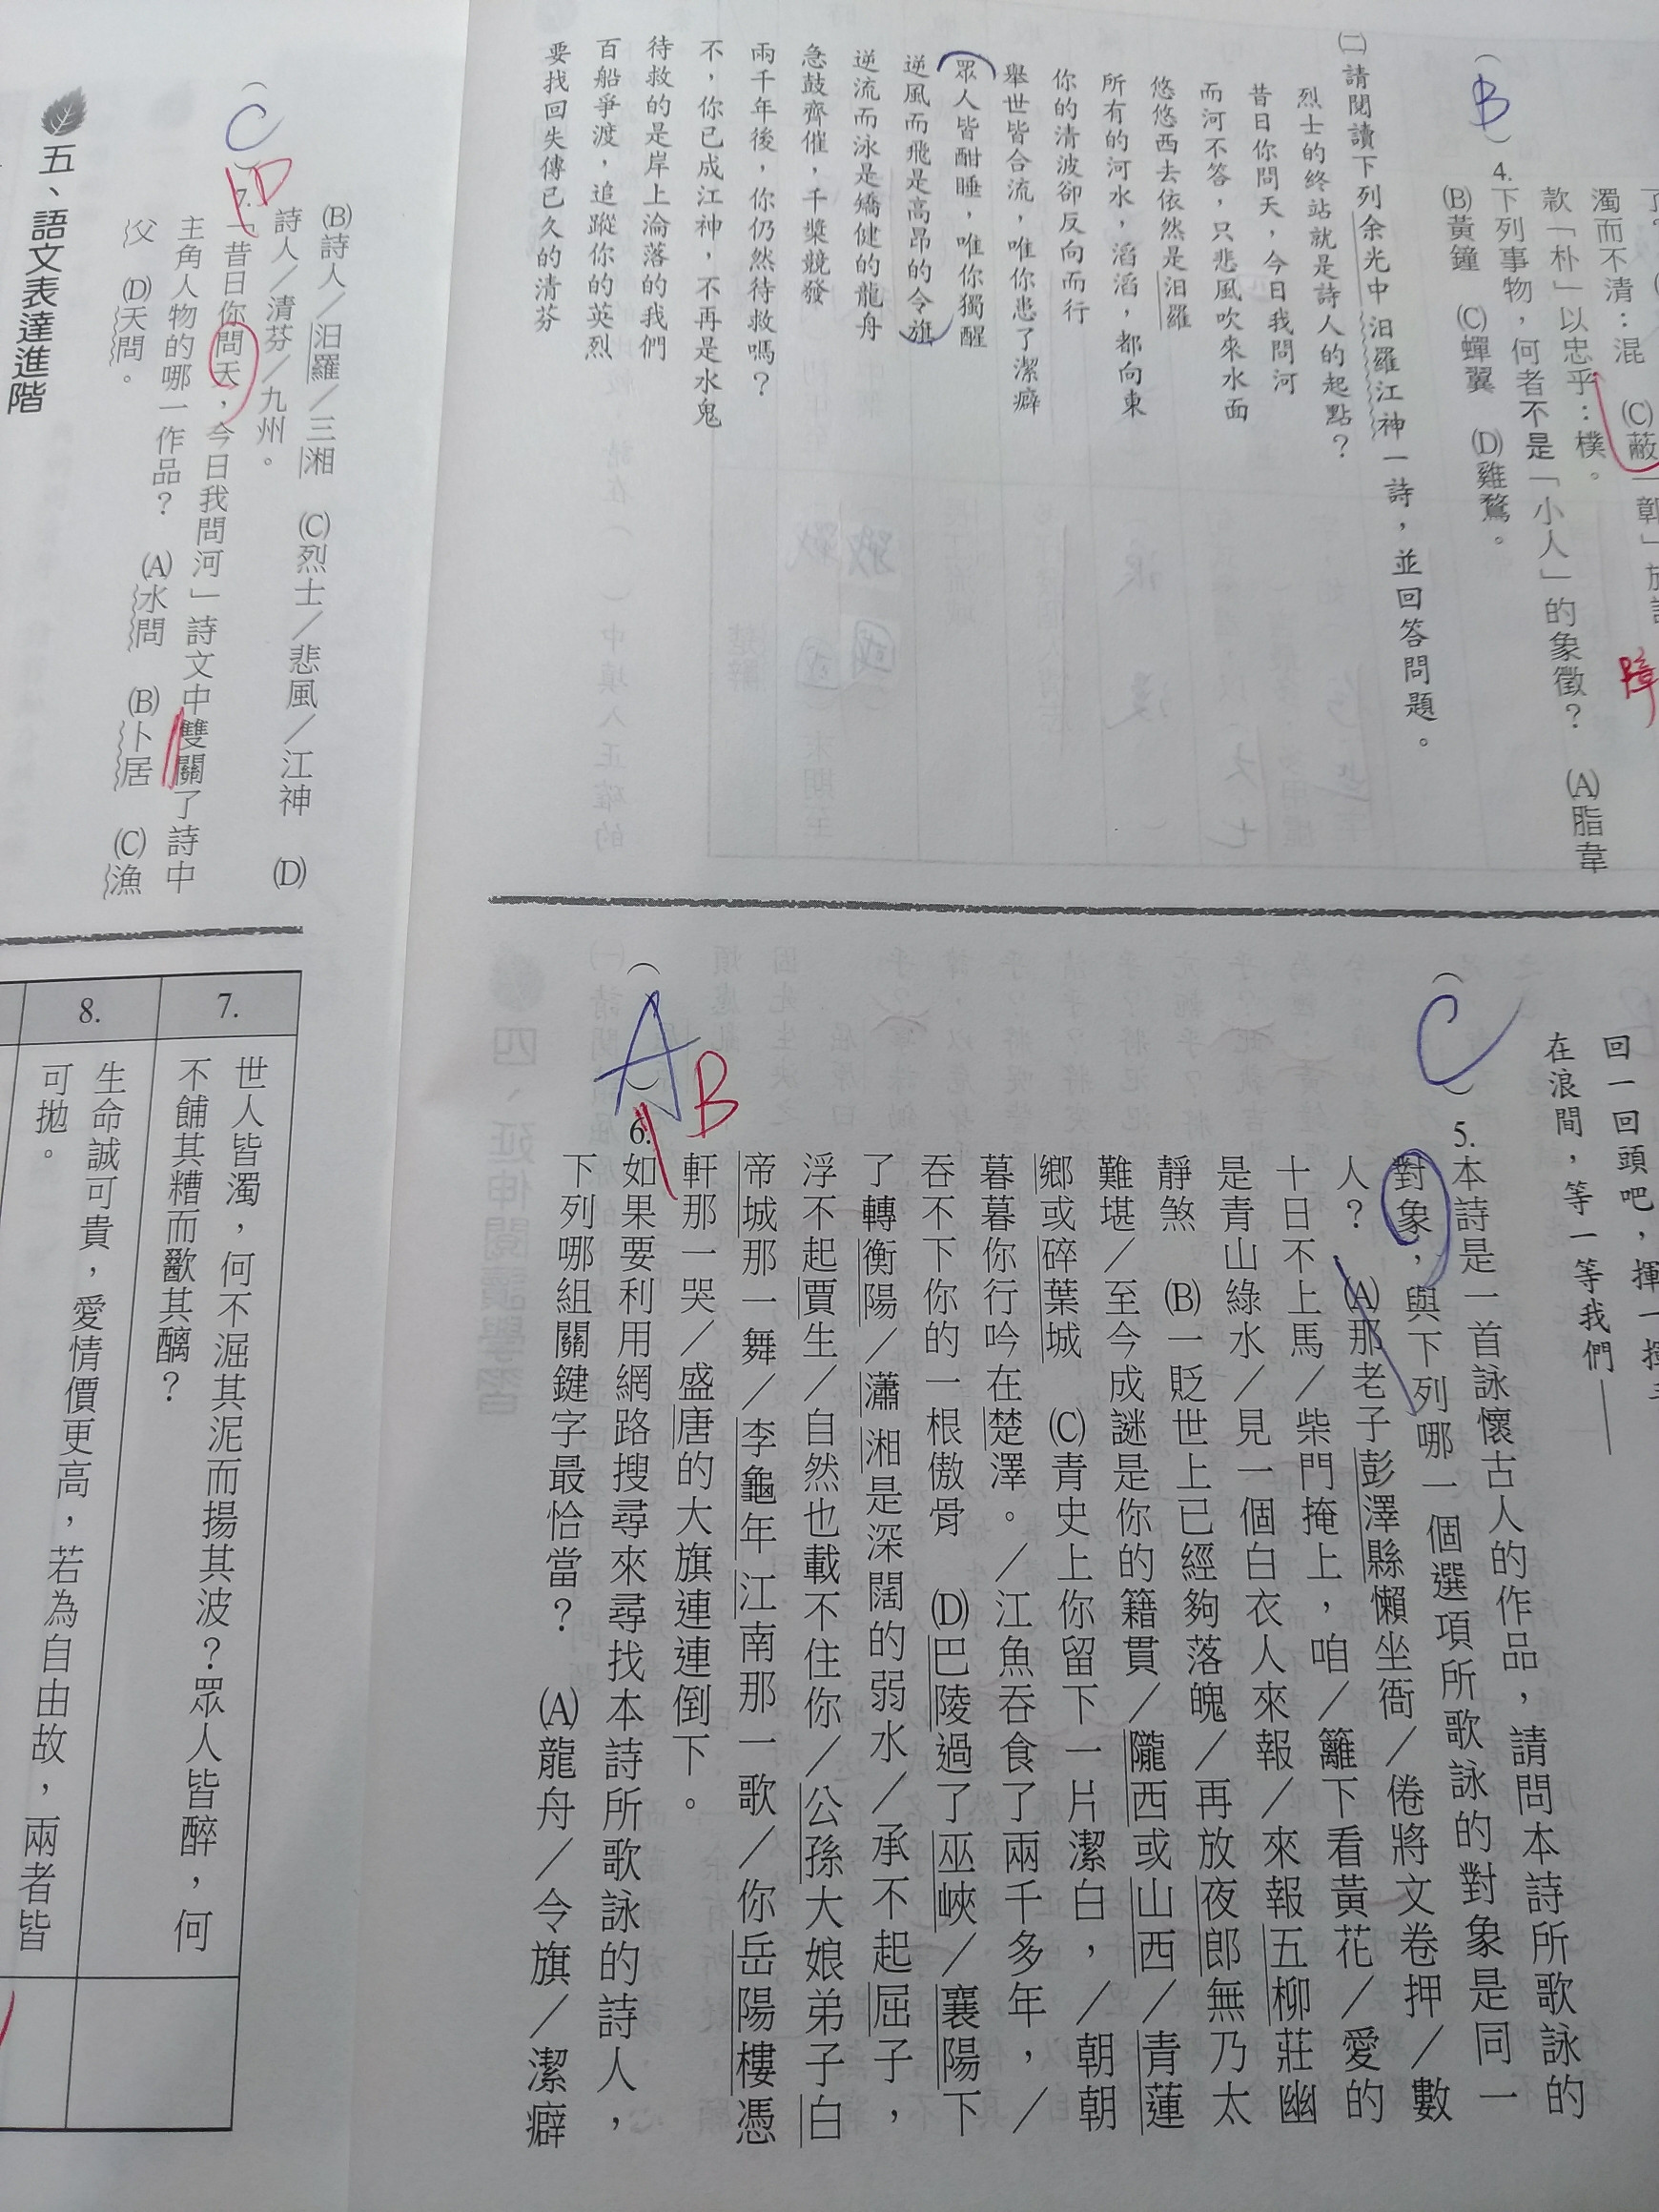 了?
濁而不清:混 (C)蔽
款「朴」以忠乎:樸。
障
(B) 4. 下列事物,何者不是「小人」的象徵? (A)脂韋
(B)黃鐘 (C)蟬翼 (D)雞鶩。
(二)請閱讀下列余光中 汨羅江神一詩,並回答問題。
烈士的終站就是詩人的起點?
昔日你問天,今日我問河
而河不答,只悲風吹來水面
悠悠西去依然是汨羅
所有的河水,滔滔,都向東
你的清波卻反向而行
舉世皆合流,唯你患了潔癖
眾人皆酣睡,唯你獨醒
逆風而飛是高昂的令旗
逆流而泳是矯健的龍舟
急鼓齊催,千槳競發
兩千年後,你仍然待救嗎?
不,你已成江神,不再是水鬼
待救的是岸上淪落的我們
百船爭渡,追蹤你的英烈
要找回失傳已久的清芬
回一回頭吧,揮一揮手
在浪間,等一等我們——
(C) 5. 本詩是一首詠懷古人的作品,請問本詩所歌詠的
對象,與下列哪一個選項所歌詠的對象是同一
人? (A)那老子彭澤縣懶坐衙/倦將文卷押/數
十日不上馬/柴門掩上,咱/籬下看黃花/愛的
是青山綠水/見一個白衣人來報/來報五柳莊幽
靜煞 (B)一貶世上已經夠落魄/再放夜郎無乃太
難堪/至今成謎是你的籍貫/隴西或山西/青蓮
鄉或碎葉城 (C)青史上你留下一片潔白,/朝朝
暮暮你行吟在楚澤。/江魚吞食了兩千多年,/
吞不下你的一根傲骨 (D)巴陵過了巫峽/襄陽下
了轉衡陽/瀟湘是深闊的弱水/承不起屈子,
浮不起賈生/自然也載不住你/公孫大娘弟子白
帝城那一舞/李龜年江南那一歌/你岳陽樓憑
軒那一哭/盛唐的大旗連連倒下。
(A) B 6. 如果要利用網路搜尋來尋找本詩所歌詠的詩人,
下列哪組關鍵字最恰當? (A)龍舟/令旗/潔癖
(B)詩人/汨羅/三湘 (C)烈士/悲風/江神 (D)
詩人/清芬/九州。
(C) D 7. 「昔日你問天,今日我問河」詩文中雙關了詩中
主角人物的哪一作品? (A)水問 (B)卜居 (C)漁
父 (D)天問。
五、語文表達進階
7. 世人皆濁,何不淈其泥而揚其波?眾人皆醉,何
不餔其糟而歠其醨?
8. 生命誠可貴,愛情價更高,若為自由故,兩者皆
可拋。